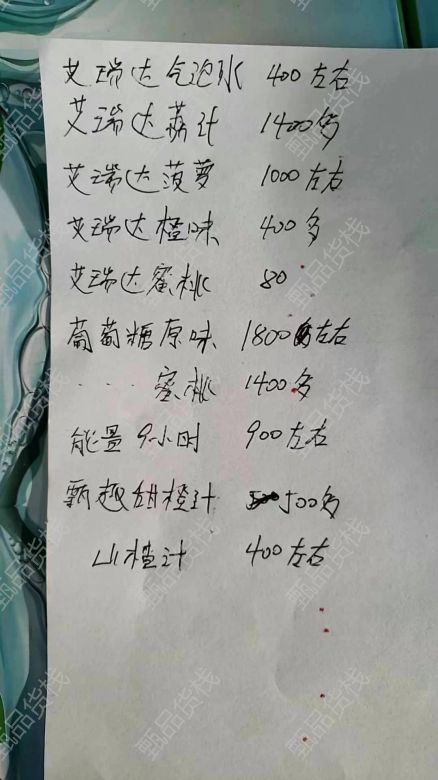 艾瑞达气泡水 400左右
艾瑞达荔汁 1400多
艾瑞达菠萝 1000左右
艾瑞达橙味 400多
艾瑞达蜜桃 80
葡萄糖原味 1800左右
.... 蜜桃 1400多
能量9小时 900左右
甄趣甜橙汁 500多
山楂汁 400左右
甄品货栈